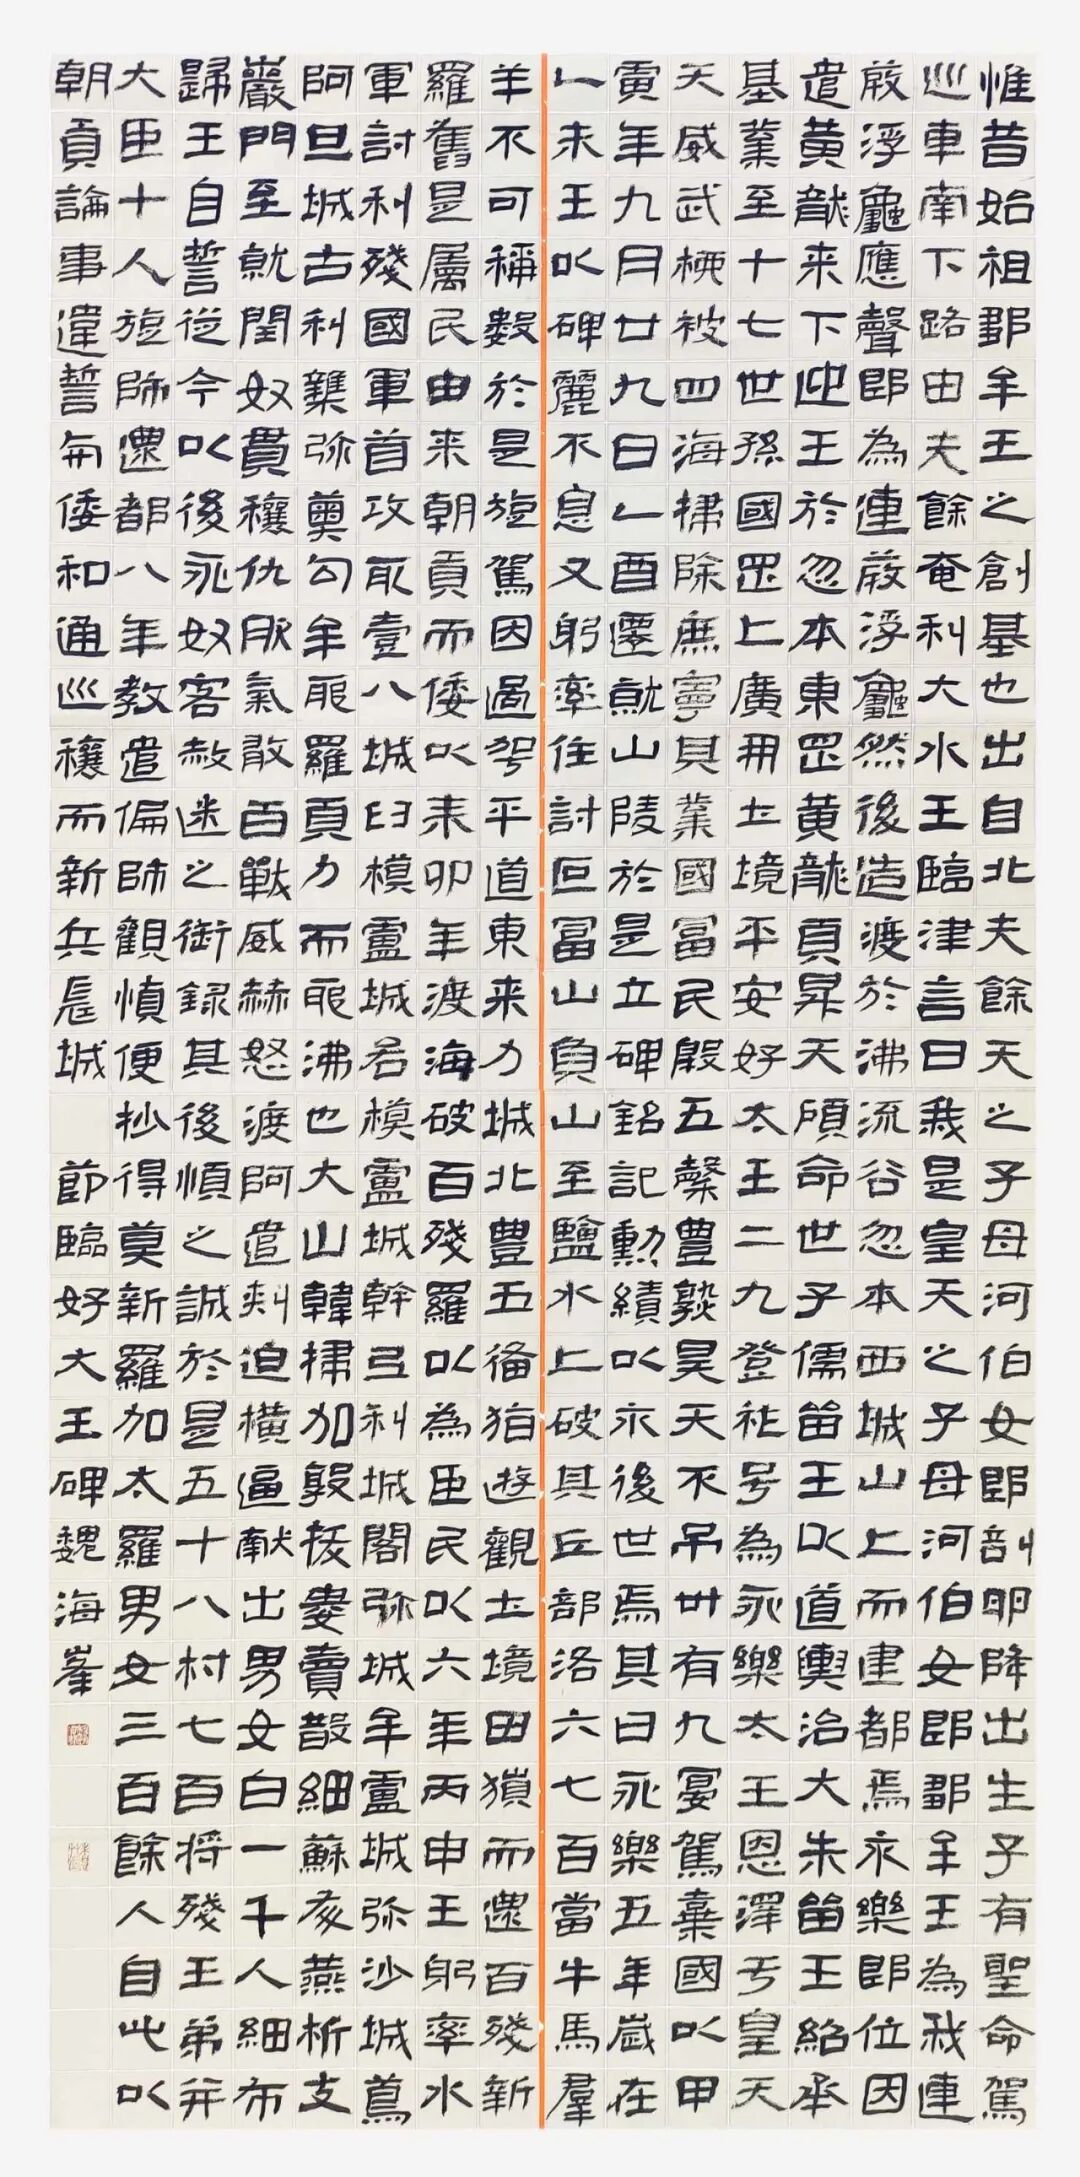 惟昔始祖鄒牟王之創基也出自北夫餘天之子母河伯女郎剖卵降出生子有聖命駕
巡車南下路由夫餘奄利大水王臨津言曰我是皇天之子母河伯女郎鄒牟王為我連
葭浮龜應聲即為連葭浮龜然後造渡於沸流谷忽本西城山上而建都焉永樂即位因
遣黃龍来下迎王於忽本東罡黃龍頁昇天頋命世子儒留王以道輿治大朱留王紹承
基業至十七世孫國罡上廣開土境平安好太王二九登祚号為永樂太王恩澤于皇天
天威武柳被四海掃除庶寧其業國富民殷五穀豊熟昊天不吊卅有九宴駕棄國以甲
寅年九月廿九日乙酉遷就山陵於是立碑銘記勳績以永後世焉其曰永樂五年歲在
乙未王以碑麗不息又躬率住討叵富山負山至鹽水上破其丘部洛六七百當牛馬羣
羊不可稱數於是旋駕因過平道東来力城北豊五備猶遊觀土境田獵而還百殘新
羅舊是屬民由来朝貢而倭以耒卯年渡海破百殘羅以為臣民以六年丙申王躬率水
軍討利殘國軍首攻取壹八城臼模盧城名模盧城幹弓利城閣弥城牟盧城弥沙城蔦
阿旦城古利雜弥奧勾牟耶羅頁力而耶沸也大山韓掃加敦拔婁賣散細蘇亥燕析支
嚴門至就閏奴貫穰仇服氣敢百戰威赫怒渡阿遣刺迫橫逼献出男女白一千人細布
歸王自誓從今以後永奴客赦迷之御録其後順之誠於是五十八村七百将殘王弟并
大臣十人旋師還都八年教遣偏師觀慎便抄得莫新羅加太羅男女三百餘人自此以
朝貢論事違誓倭和通巡穰而新兵長城 節臨好大王碑魏海峯